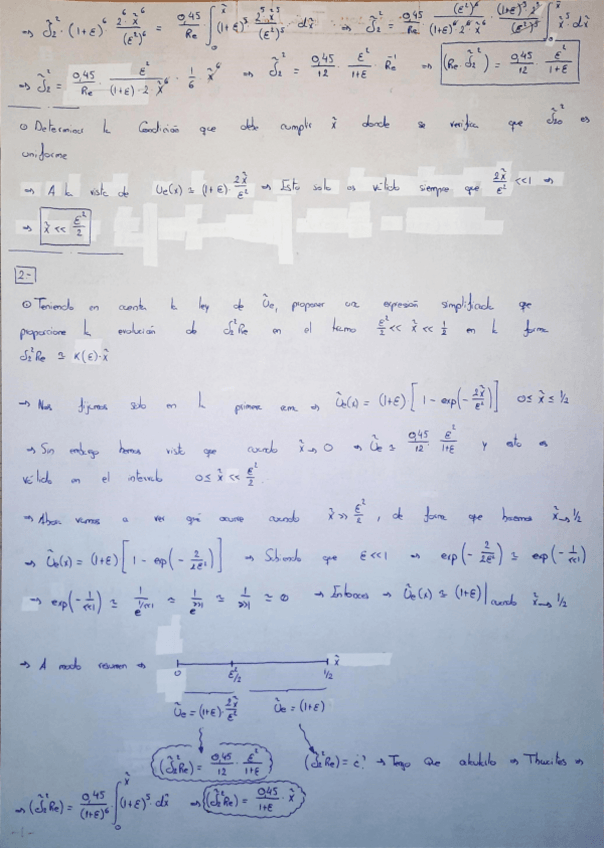 ⇒ δ̃₂² · (1+ε)⁶ 2⁶·x̃⁶/(ε²)⁶ = 0,45/Re ∫₀^x̃ (1+ε)⁵ 2⁵·x̃⁵/(ε²)⁵ dx̃ ⇒ δ̃₂² = 0,45/Re (ε²)⁶/((1+ε)⁶·2⁶·x̃⁶) · (1+ε)⁵·2⁵/(ε²)⁵ ∫₀^x̃ x̃⁵dx̃
⇒ δ̃₂² = 0,45/Re · ε²/((1+ε)·2·x̃⁶) · 1/6 x̃⁶ ⇒ δ̃₂² = 0,45/12 · ε²/(1+ε) · Re⁻¹ ⇒ (Re δ̃₂²) = 0,45/12 · ε²/(1+ε)
⊙ Determinar la Condición que debe cumplir x̃ donde se verifica que δ̃₂₀² es
uniforme
⇒ A la vista de Ue(x) ≅ (1+ε)· 2x̃/ε² ⇒ Esto solo es válido siempre que 2x̃/ε² <<1 ⇒
⇒ x̃ << ε²/2
2-
⊙ Teniendo en cuenta la ley de Ũe, proponer una expresión simplificada que
proporcione la evolución de δ₂²Re en el tramo ε²/2 << x̃ << 1/2 en la forma
δ₂²Re ≅ K(ε)·x̃
→ Nos fijamos solo en la primera rama ⇒ Ũe(x) = (1+ε)·[1 - exp(-2x̃/ε²)] 0≤x̃≤1/2
→ Sin embargo hemos visto que cuando x̃→0 ⇒ Ũe ≅ 0,45/12 · ε²/(1+ε) y esto es
válido en el intervalo 0≤x̃<< ε²/2
→ Ahora vamos a ver qué ocurre cuando x̃>> ε²/2, de forma que hacemos x̃→1/2
⇒ Ũe(x) = (1+ε)[1 - exp(-2/2ε²)] ⇒ Sabiendo que ε<<1 ⇒ exp(-2/2ε²) ≅ exp(-1/<<1)
→ exp(-1/<<1) ≅ 1/e^(1/<<1) ≅ 1/e^(>>1) ≅ 1/>>1 ≅ 0 → Entonces → Ũe(x) ≅ (1+ε)| cuando x̃→1/2
→ A modo resumen ⇒ x̃
0 ε²/2 1/2
Ũe = (1+ε)· 2x̃/ε² Ũe = (1+ε)
(δ̃₂²Re) = 0,45/12 · ε²/(1+ε) (δ̃₂²Re) = ¿? → Tengo que calcularlo ⇒ Thwaites ⇒
⇒ (δ̃₂²Re) = 0,45/(1+ε)⁶ ∫₀^x̃ (1+ε)⁵·dx̃ ⇒ (δ̃₂²Re) = 0,45/(1+ε) · x̃
-1-